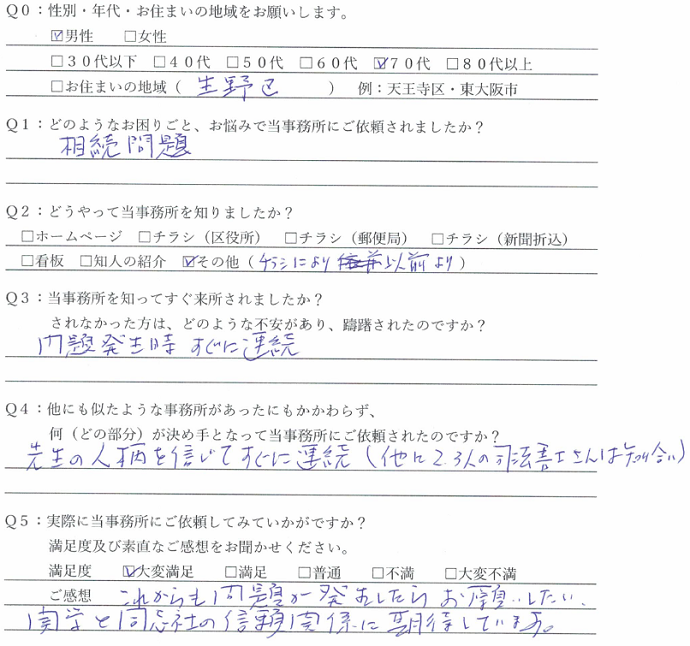 Q0：性別・年代・お住まいの地域をお願いします。
☑男性　□女性
□３０代以下　□４０代　□５０代　□６０代　☑７０代　□８０代以上
□お住まいの地域（　生野区　）　例：天王寺区・東大阪市
Q1：どのようなお困りごと、お悩みで当事務所にご依頼されましたか？
相続問題
Q2：どうやって当事務所を知りましたか？
□ホームページ　□チラシ（区役所）　□チラシ（郵便局）　□チラシ（新聞折込）
□看板　□知人の紹介　☑その他（チラシにより 以前より）
Q3：当事務所を知ってすぐ来所されましたか？
されなかった方は、どのような不安があり、躊躇されたのですか？
問題発生時 すぐに連続
Q4：他にも似たような事務所があったにもかかわらず、
何（どの部分）が決め手となって当事務所にご依頼されたのですか？
先生の人柄を信じてすぐに連続（他に2.3人の司法書士さんは知り合い）
Q5：実際に当事務所にご依頼してみていかがですか？
満足度及び素直なご感想をお聞かせください。
満足度　☑大変満足　□満足　□普通　□不満　□大変不満
ご感想　これからも問題が発生したらお願いしたい、
関学と同志社の信頼関係に期待しています。